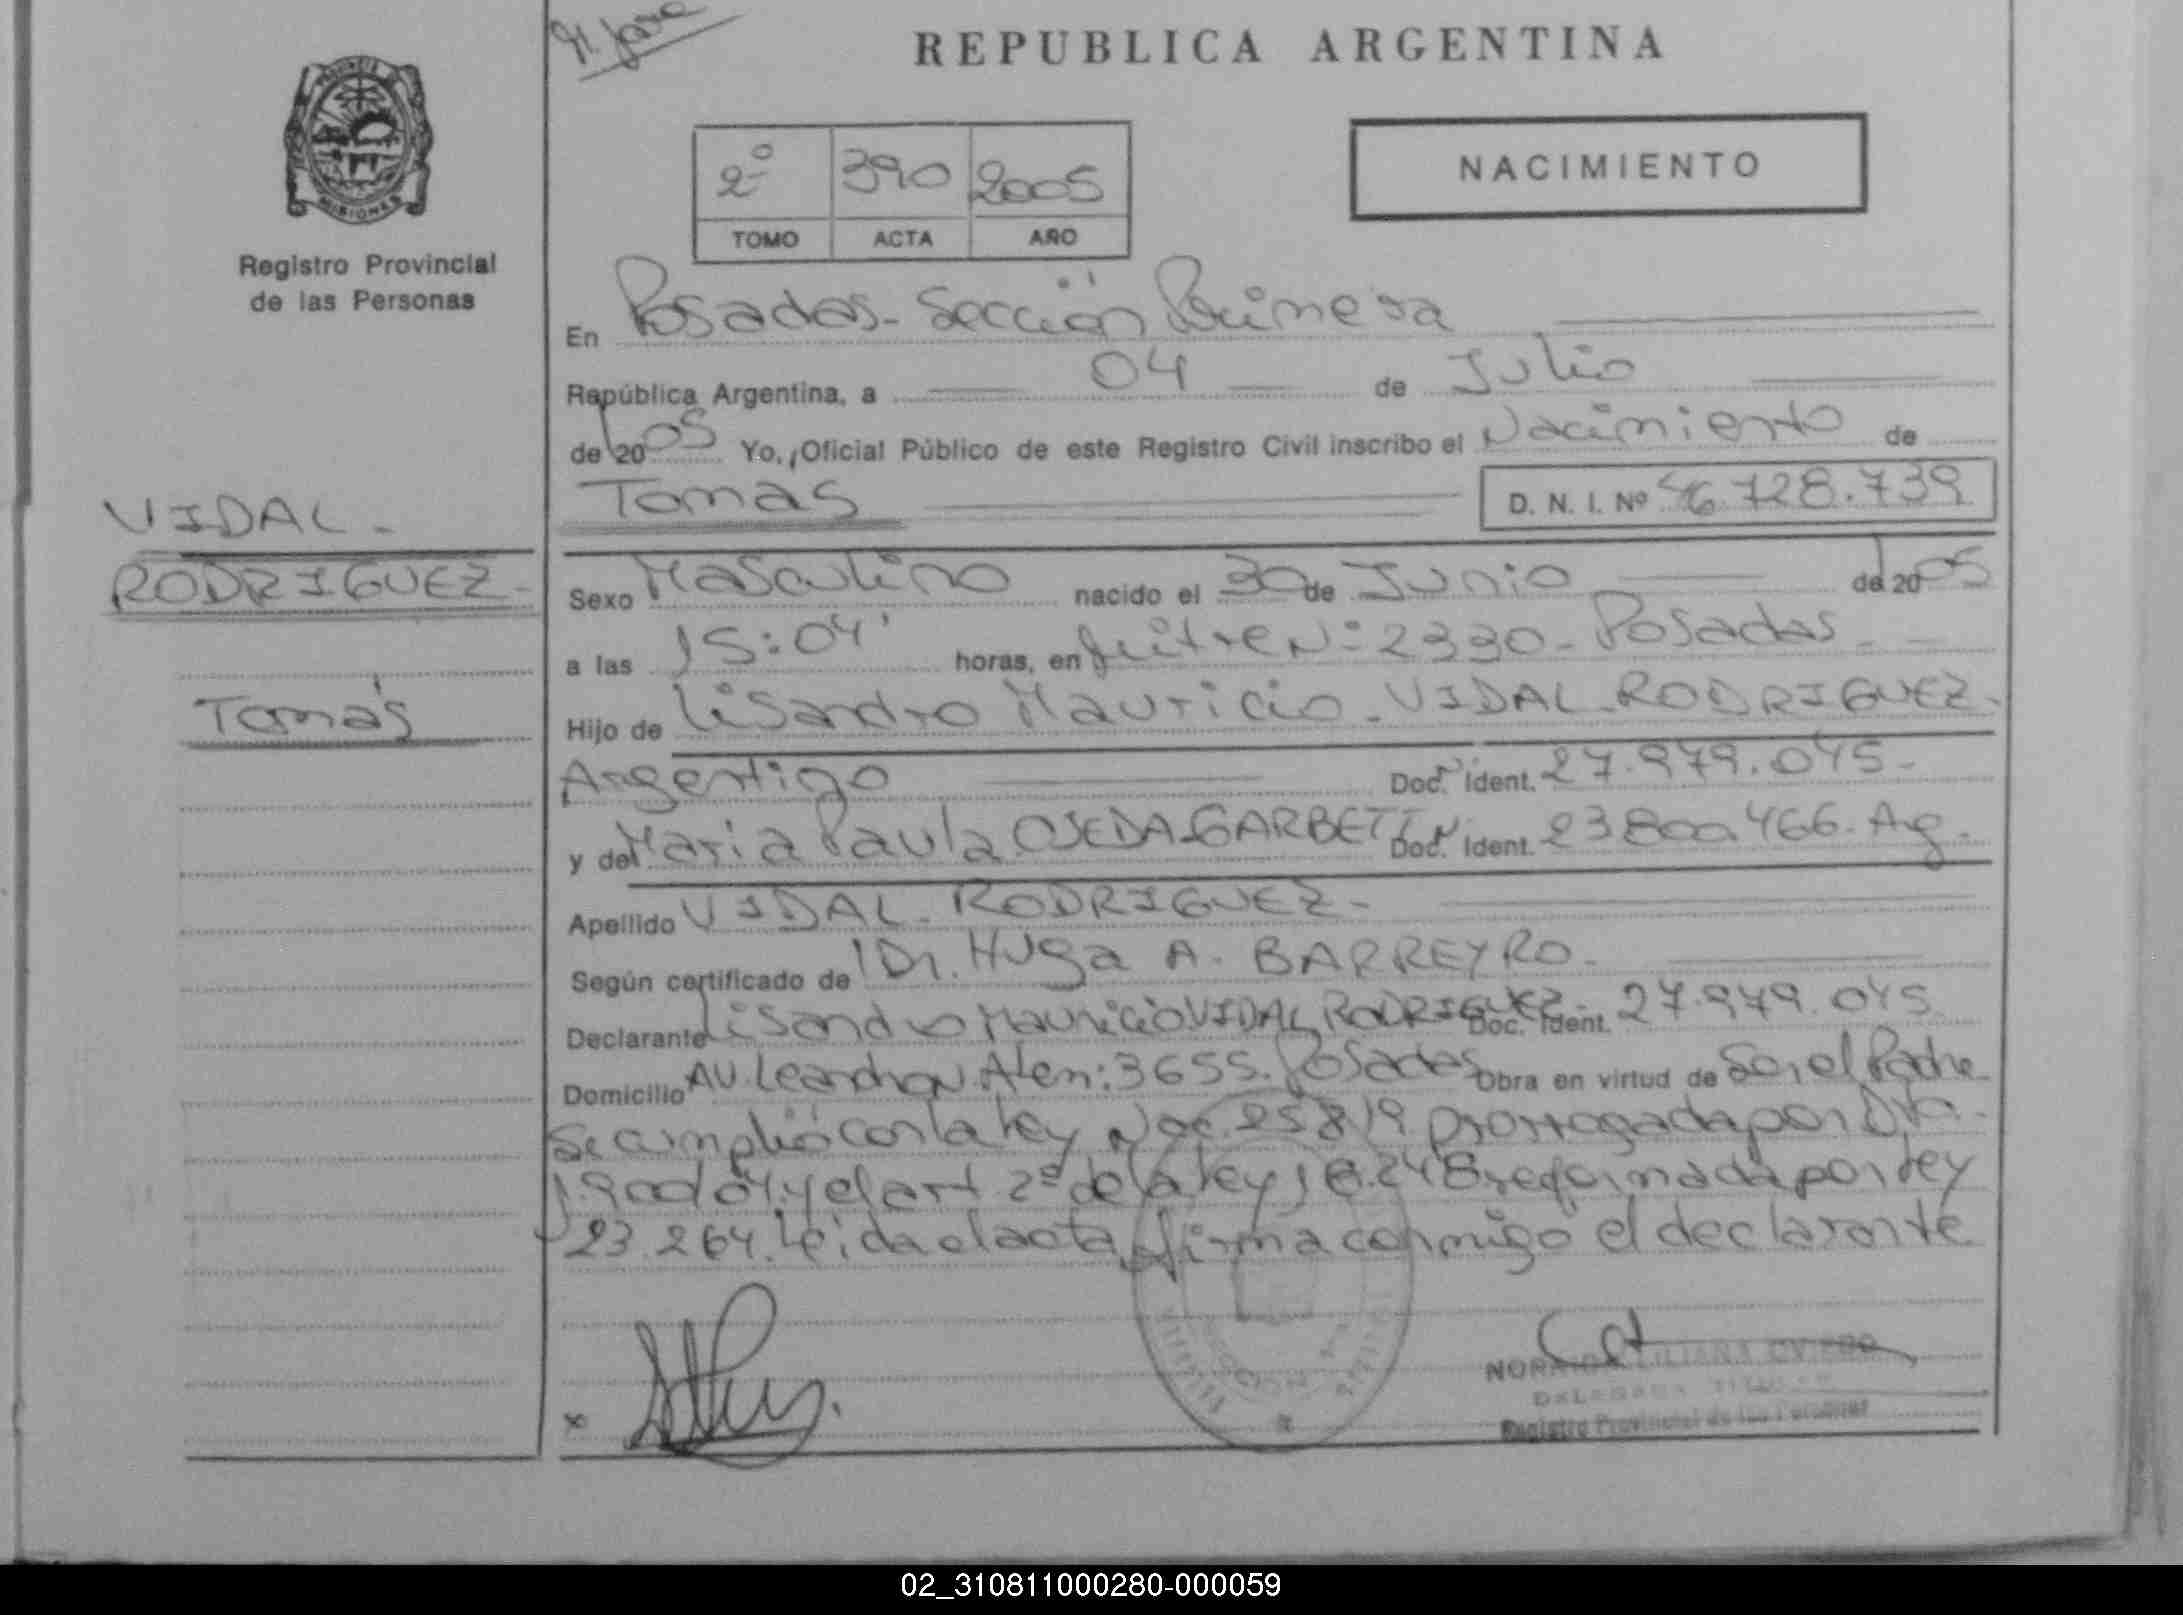 REPUBLICA ARGENTINA
PROVINCIA DE
MISIONES
Registro Provincial
de las Personas
2º 390 2005
TOMO ACTA AÑO
NACIMIENTO
En Posadas - Sección Primera
República Argentina, a 04 de Julio
de 2005 Yo, Oficial Público de este Registro Civil inscribo el Nacimiento de
Tomas D. N. I. Nº 46.728.739
VIDAL -
RODRIGUEZ -
Tomás
Sexo Masculino nacido el 30 de Junio de 2005
a las 15:04' horas, en Mitre Nº 2330 - Posadas -
Hijo de Lisandro Mauricio - VIDAL - RODRIGUEZ -
Argentino Doc. Ident. 27.979.045 -
y de Maria Paula OJEDA - GARBETT Doc. Ident. 23.800.466 - Arg -
Apellido VIDAL - RODRIGUEZ -
Según certificado de Dr. Hugo A. BARREYRO -
Declarante Lisandro Mauricio VIDAL RODRIGUEZ - Doc. Ident. 27.979.045
Domicilio AV. Leandro N. Alem: 3655 - Posadas Obra en virtud de Ser el Padre
Se cumplió con la ley Nro. 25819 prorrogada por Dto.
y el art. 2º de la ley 18.248 reformada por ley
23.264. Leida el acta, firma conmigo el declarante
LILIANA OVIEDO
DELEGADA TITULAR
Registro Provincial de las Personas
02_310811000280-000059